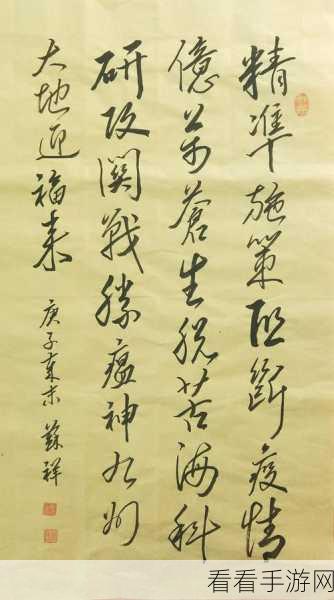 精準施策阻斷疫情
億萬蒼生脱苦海科
研攻関戰勝瘟神九州
大地迎福来
庚子年末 蘇祥
看看手游网